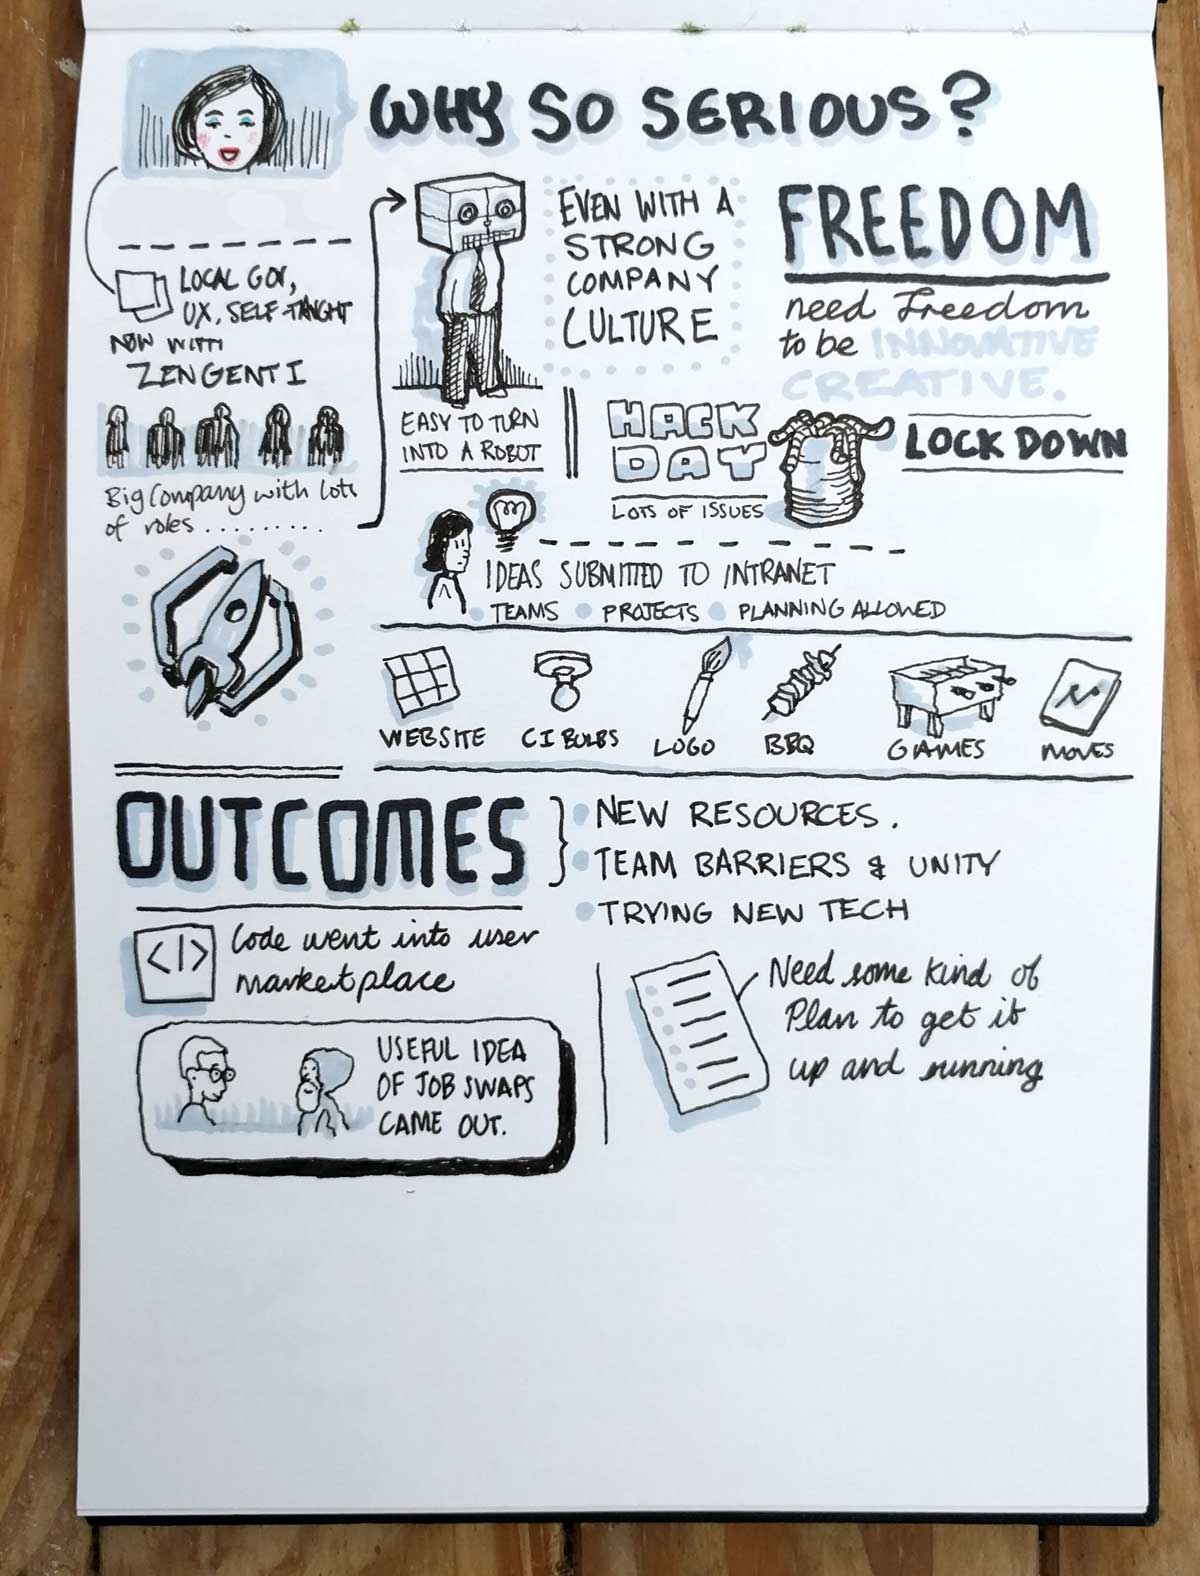 WHY SO SERIOUS?
LOCAL GOV,
UX, SELF-TAUGHT
NOW WITH
ZENGENTI
Big Company with lots
of roles .........
EASY TO TURN
INTO A ROBOT
EVEN WITH A
STRONG
COMPANY
CULTURE
FREEDOM
need Freedom
to be INNOVATIVE
CREATIVE.
HACK
DAY
LOTS OF ISSUES
LOCK DOWN
IDEAS SUBMITTED TO INTRANET
TEAMS PROJECTS PLANNING ALLOWED
WEBSITE CI BULBS LOGO BBQ GAMES MOVES
OUTCOMES
NEW RESOURCES.
TEAM BARRIERS & UNITY
TRYING NEW TECH
</> Code went into user
marketplace
USEFUL IDEA
OF JOB SWAPS
CAME OUT.
Need some kind of
Plan to get it
up and running